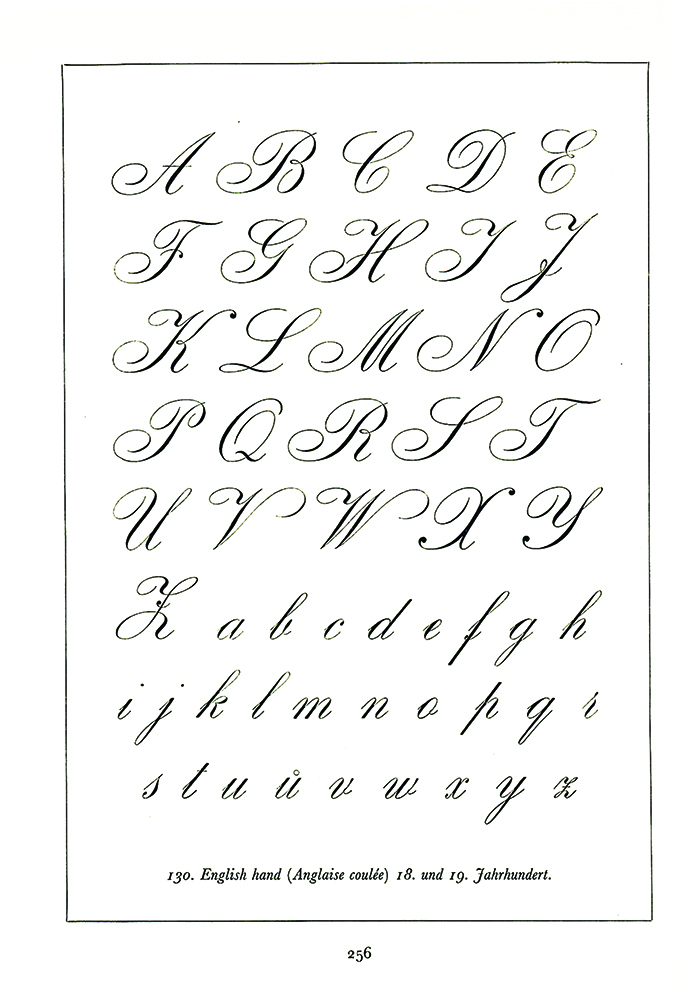 A B C D E
F G H I J
K L M N O
P Q R S T
U V W X Y
Z a b c d e f g h
i j k l m n o p q r
s t u ů v w x y z
130. English hand (Anglaise coulée) 18. und 19. Jahrhundert.
256